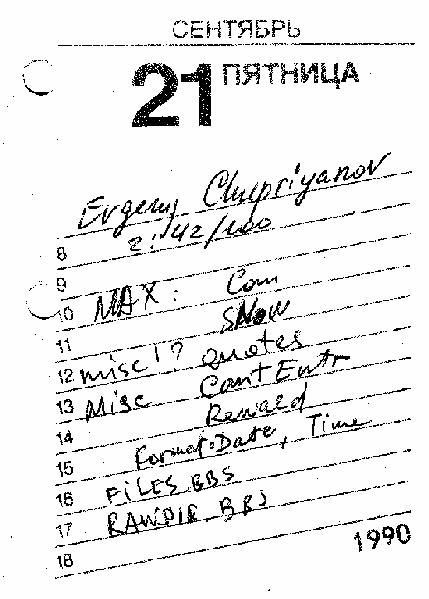 СЕНТЯБРЬ
21 ПЯТНИЦА
Evgeny Chupriyanov
8 2:42/100
9
10 MAX: Com
11 SNOW
12 misc!? quotes
13 Misc Cant Entr
14
15 Format:Date, Time
16 FILES.BBS
17 RAWDIR.BBS
18
1990